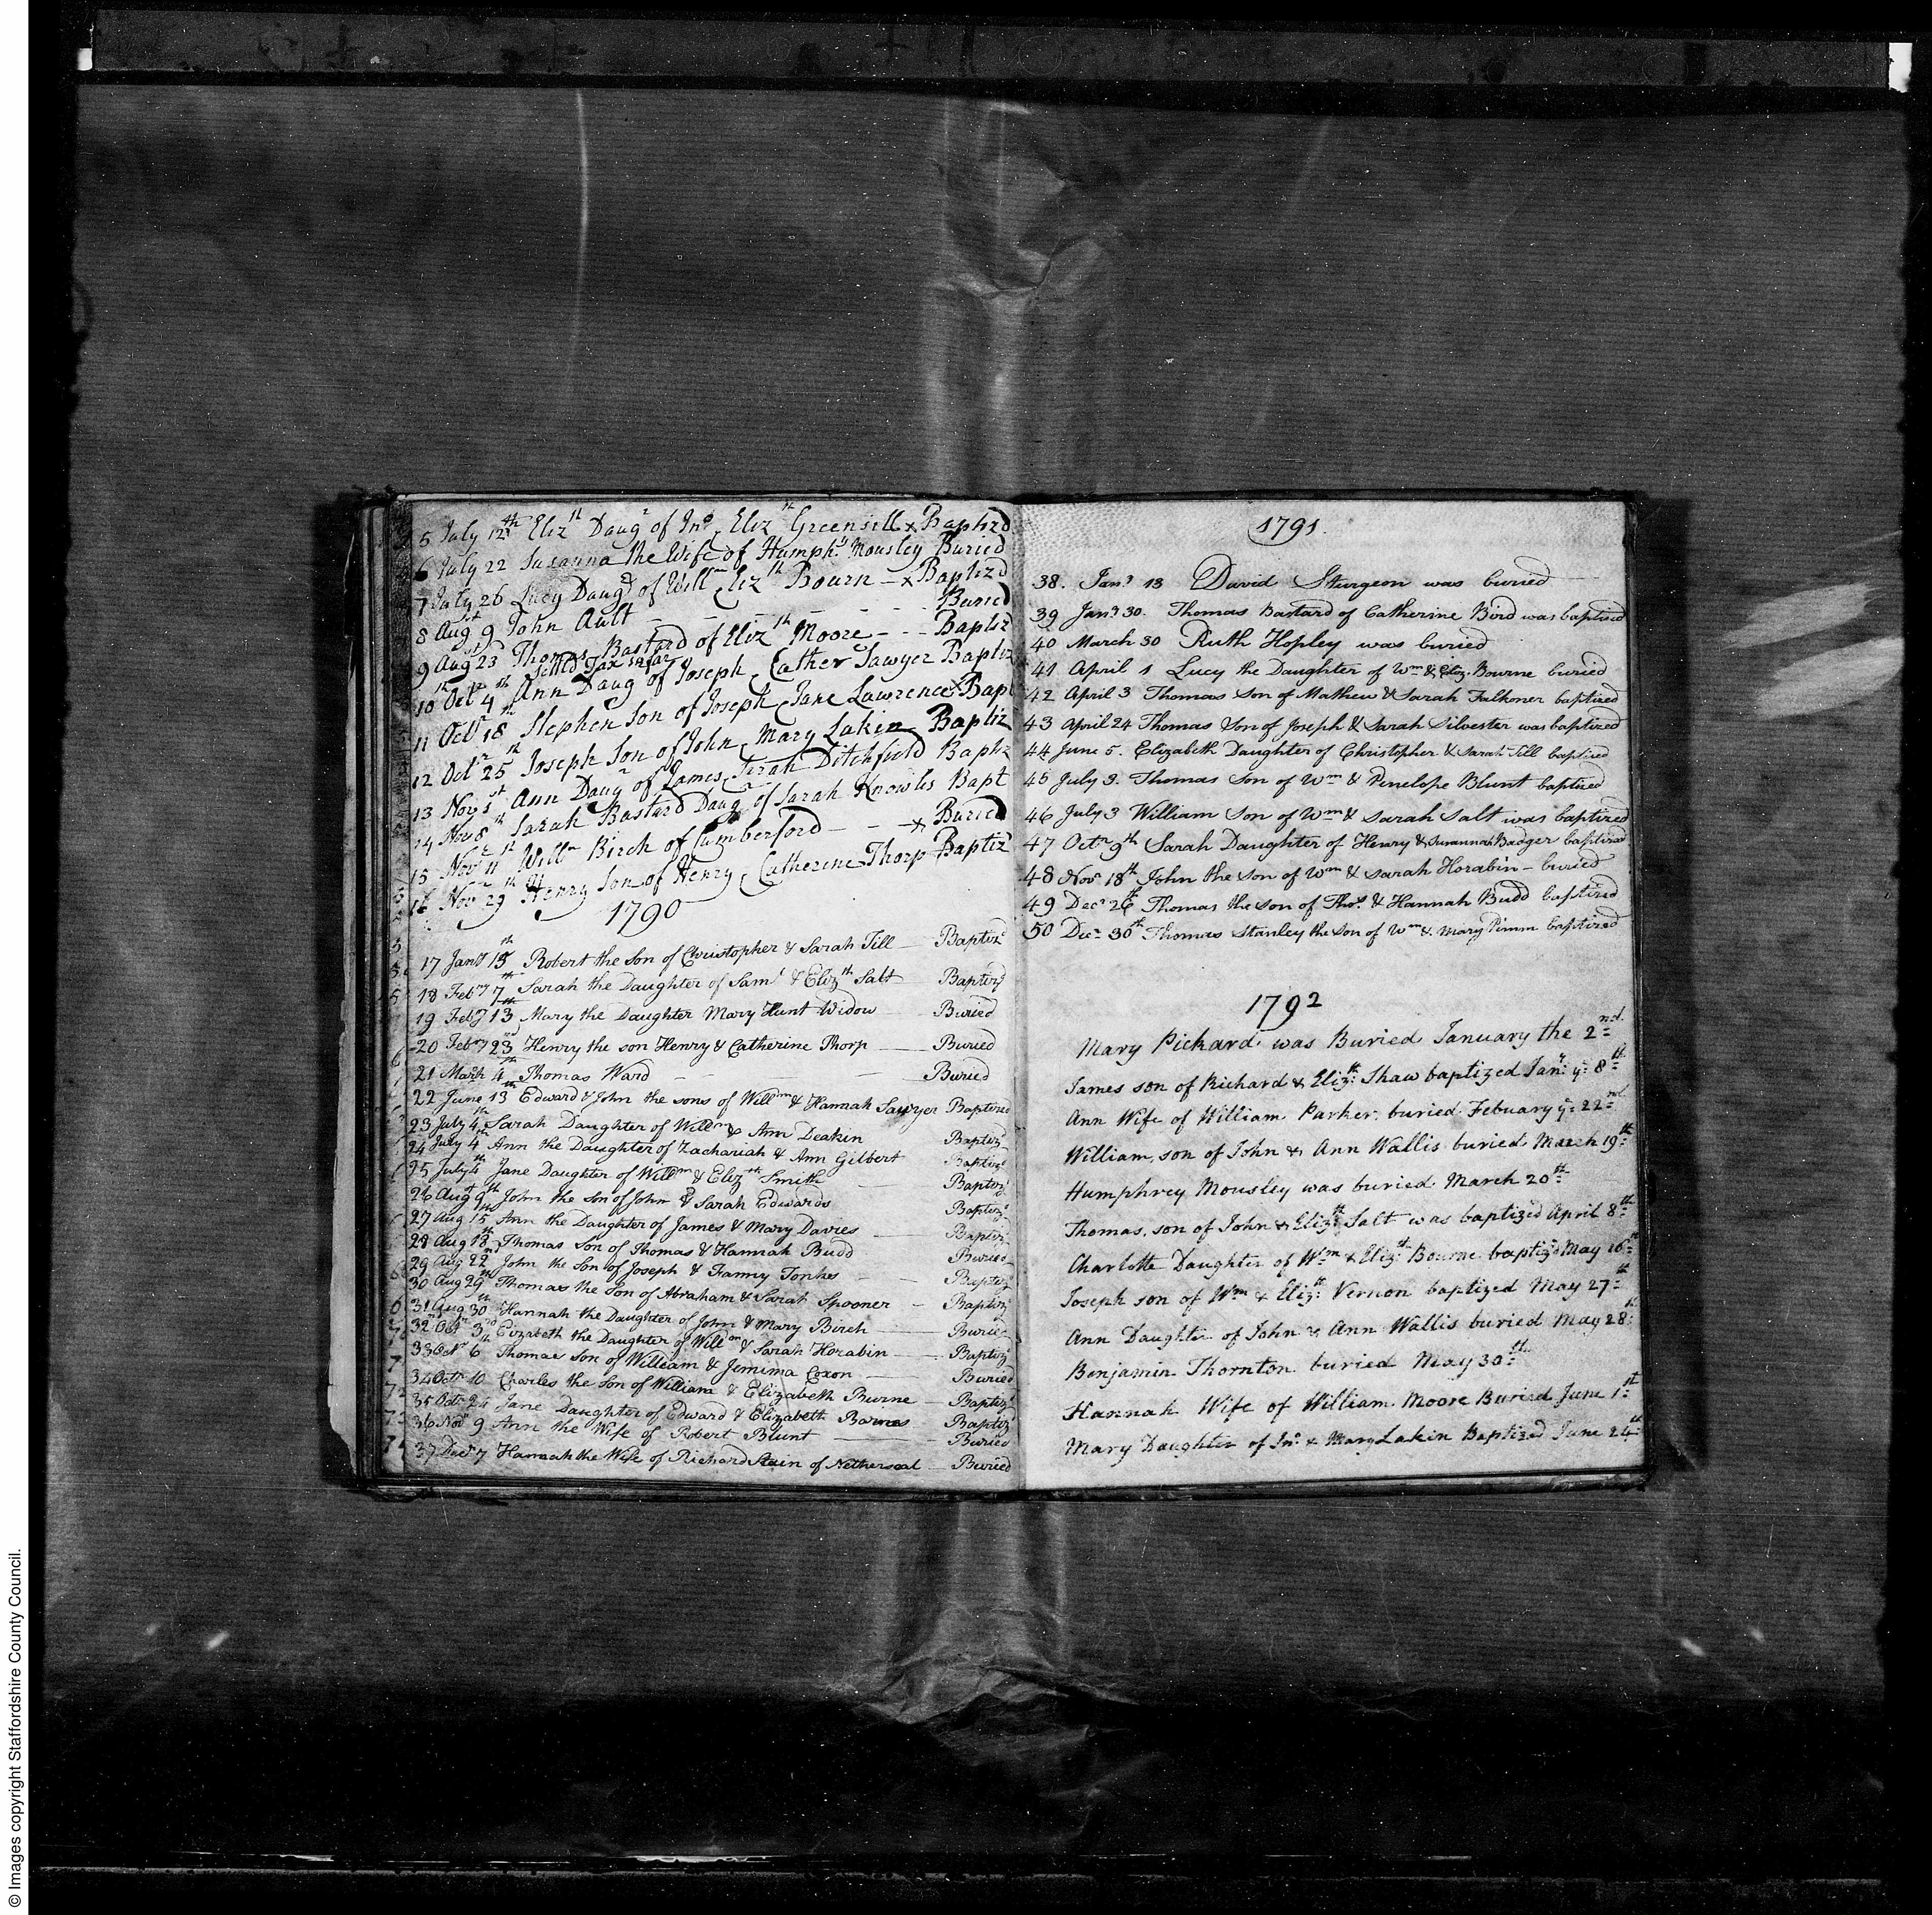 5 July 12th Elizth Daugr of Jno, Elizth Greensill x Baptizd
6 July 22 Susanna the Wife of Humphy Mousley Buried
7 July 26 Lucy Daugr of Willm Elizth Bourn - x Baptizd
8 Augst 9 John Ault - - - - - Buried
9 Augst 23 Thomas Bastard of Elizth Moore - - - Baptiz
Settl'd Tax so far
10 Octr 4th Ann Daugr of Joseph, Cather Sawyer Baptiz
11 Octr 18th Stephen Son of Joseph Jane Lawrence x Bapt
12 Octr 25th Joseph Son of John, Mary Lakin - Baptiz
13 Novr 1st Ann Daugr of James, Sarah Ditchfield Baptiz
14 Novr 8th Sarah Bastard Daugr of Sarah Knowles Bapt
15 Novr 11th Willm Birch of Cumberford - - x Buried
16 Novr 29th Henry Son of Henry, Catherine Thorp Baptiz
1790
17 Jany 15th Robert the Son of Christopher & Sarah Till - Baptizd
18 Febry 7th Sarah the Daughter of Saml & Elizth Salt Baptizd
19 Feby 13th Mary the Daughter Mary Hunt Widow - Buried
20 Febry 23rd Henry the son Henry & Catherine Thorp - Buried
21 March 4th Thomas Ward - - - Buried
22 June 13th Edward & John the sons of Willm & Hannah Sawyer Baptized
23 July 4th Sarah Daughter of Willm & Ann Deakin Baptizd
24 July 4th Ann the Daughter of Zachariah & Ann Gilbert Baptizd
25 July 4th Jane Daughter of Willm & Elizth Smith - Baptizd
26 Augst 9th John the Son of John & Sarah Edwards Baptizd
27 Aug 15th Ann the Daughter of James & Mary Davies - Baptizd
28 Aug 18th Thomas Son of Thomas & Hannah Budd Buried
29 Aug 22nd John the Son of Joseph & Fanny Tonkes - Baptizd
30 Aug 29th Thomas the Son of Abraham & Sarah Spooner - Baptizd
31 Aug 30th Hannah the Daughter of John & Mary Birch - Buried
32 Octr 3rd Elizabeth the Daughter of Willm & Sarah Horabin - Baptizd
33 Octr 6th Thomas Son of William & Jemima Coxon - Buried
34 Octr 10 Charles the Son of William & Elizabeth Burne - Baptizd
35 Octr 24 Jane Daughter of Edward & Elizabeth Barnes Baptizd
36 Novr 9 Ann the Wife of Robert Blunt - Buried
37 Decr 7 Hannah the Wife of Richard of Netherseal - Buried
1791
38. Jany 13 David Sturgeon was buried
39 Jany 30. Thomas Bastard of Catherine Bird was baptised
40 March 30 Ruth Hopley was buried
41 April 1 Lucy the Daughter of Wm & Eliz. Bourne buried
42 April 3 Thomas Son of Mathew & Sarah Falkoner baptized
43 April 24 Thomas Son of Joseph & Sarah Silvester was baptized
44 June 5. Elizabeth Daughter of Christopher & Sarah Till baptized
45 July 3. Thomas Son of Wm & Penelope Blunt baptized
46 July 3 William Son of Wm & Sarah Salt was baptized
47 Octr 9th Sarah Daughter of Henry & Susannah Badger baptized
48 Novr 18th John the Son of Wm & Sarah Horabin - buried
49 Decr 26th Thomas the son of Thos. & Hannah Budd baptized
50 Decr 30th Thomas Stanley the Son of Wm & Mary Pimm baptized
1792
Mary Pickard was Buried January the 2nd
James son of Richard & Elizth Shaw baptized Jany ye 8th
Ann Wife of William Parker buried Febuary ye 22nd
William son of John & Ann Wallis buried March 19th
Humphrey Mousley was buried March 20th
Thomas, son of John & Elizth Salt was baptized April 8th
Charlotte Daughter of Wm & Elizth Bourne baptiz'd May 16th
Joseph son of Wm & Elizth Vernon baptized May 27th
Ann Daughter of John & Ann Wallis buried May 28th
Benjamin Thornton buried May 30th
Hannah Wife of William Moore Buried June 1st
Mary Daughter of Jno & Mary Lakin Baptized June 24th
© Images copyright Staffordshire County Council.